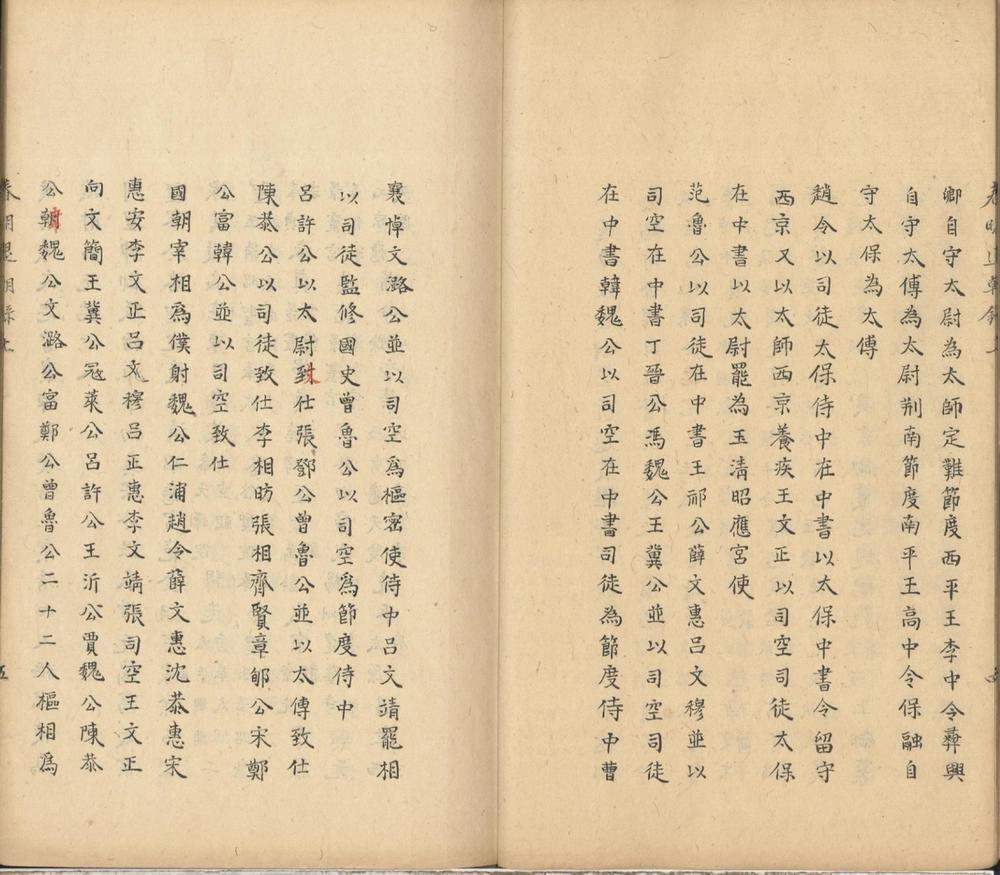 卿自守太尉為太師定難節度西平王李中令彝興
自守太傅為太尉荆南節度南平王高中令保融自
守太保為太傅
趙令以司徒太保侍中在中書以太保中書令留守
西京又以太師西京養疾王文正以司空司徒太保
在中書以太尉罷為玉清昭應宮使
范魯公以司徒在中書王祁公薛文惠吕文穆並以
司空在中書丁晉公馮魏公王冀公並以司空司徒
在中書韓魏公以司空在中書司徒為節度侍中曹
襄悼文潞公並以司空爲樞宻使侍中吕文靖罷相
以司徒監修國史曾魯公以司空爲節度侍中
吕許公以太尉致仕張鄧公曾魯公並以太傅致仕
陳恭公以司徒致仕李相昉張相齊賢章郇公宋鄭
公富韓公並以司空致仕
國朝宰相爲僕射魏公仁浦趙令薛文惠沈恭惠宋
惠安李文正吕文穆吕正惠李文靖張司空王文正
向文簡王冀公冦萊公吕許公王沂公賈魏公陳恭
公韓魏公文潞公富鄭公曾魯公二十二人樞相爲
五